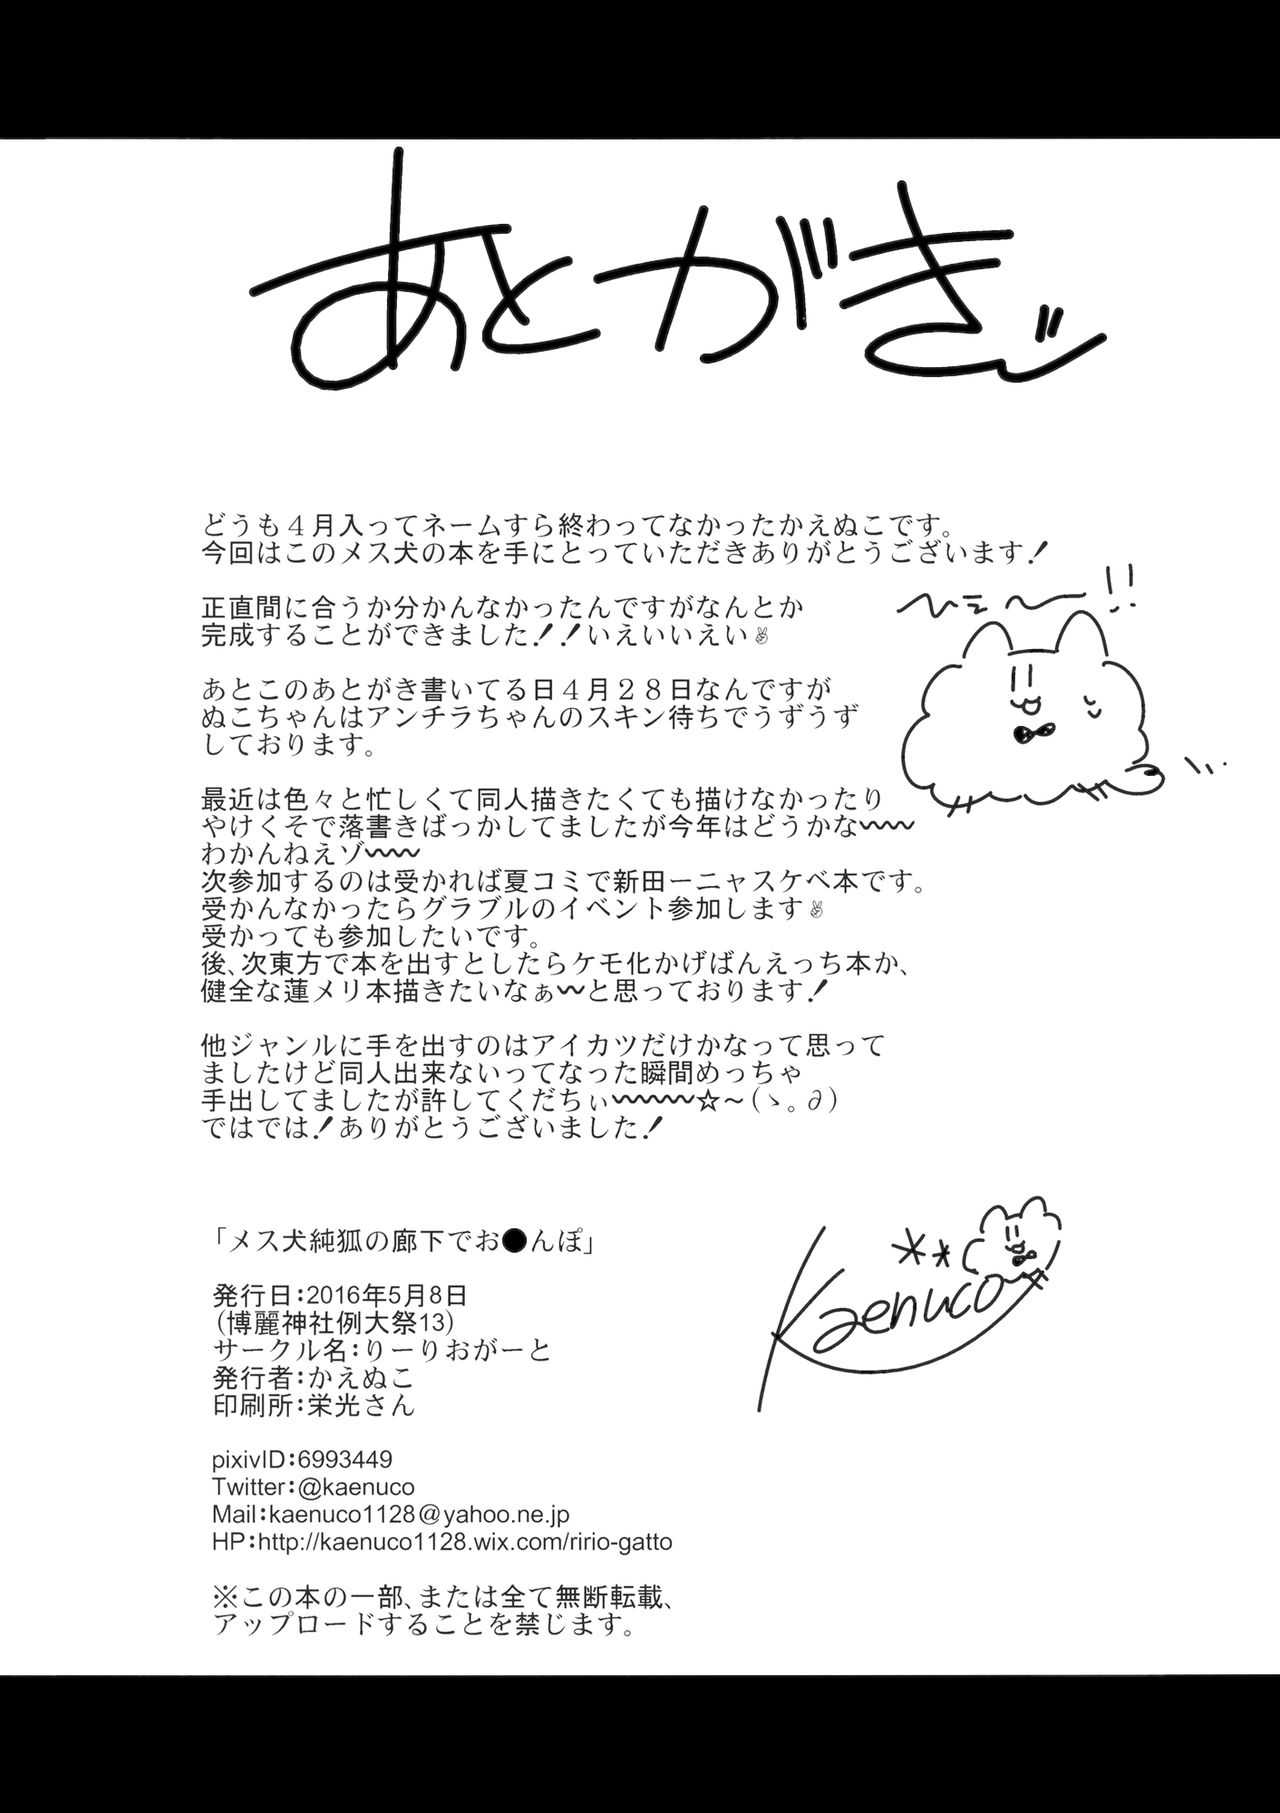 あとがきッ
どうも４月入ってネームすら終わってなかったかえぬこです。
今回はこのメス犬の本を手にとっていただきありがとうございます！
正直間に合うか分かんなかったんですがなんとか
完成することができました！！いえいいえい✌
あとこのあとがき書いてる日４月２８日なんですが
ぬこちゃんはアンチラちゃんのスキン待ちでうずうず
しております。
ひえ〜!!
最近は色々と忙しくて同人描きたくても描けなかったり
やけくそで落書きばっかしてましたが今年はどうかな〰〰
わかんねえゾ〰〰
次参加するのは受かれば夏コミで新田ーニャスケベ本です。
受かんなかったらグラブルのイベント参加します✌
受かっても参加したいです。
後、次東方で本を出すとしたらケモ化かげばんえっち本か、
健全な蓮メリ本描きたいなぁ〰と思っております！
他ジャンルに手を出すのはアイカツだけかなって思って
ましたけど同人出来ないってなった瞬間めっちゃ
手出してましたが許してくだちぃ〰〰〰☆～(ゝ。∂)
ではでは！ありがとうございました！
「メス犬純狐の廊下でお●んぽ」
発行日：2016年5月8日
（博麗神社例大祭13）
サークル名：りーりおがーと
発行者：かえぬこ
印刷所：栄光さん
Kaenuco
pixivID：6993449
Twitter：@kaenuco
Mail：kaenuco1128@yahoo.ne.jp
HP：http://kaenuco1128.wix.com/ririo-gatto
※この本の一部、または全て無断転載、
アップロードすることを禁じます。